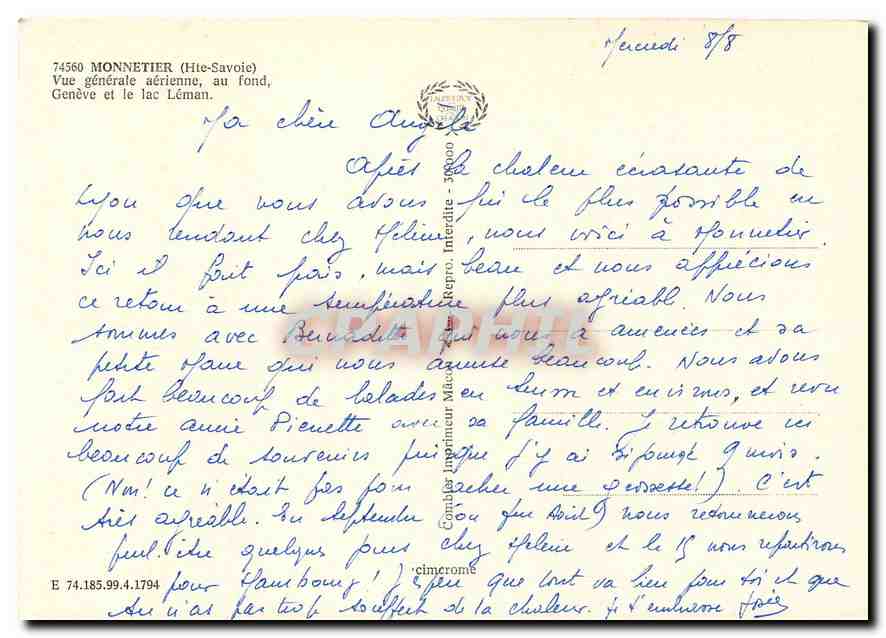 Mercredi 8/8
74560 MONNETIER (Hte-Savoie)
Vue générale aérienne, au fond,
Genève et le lac Léman.
Ma chère Angèle
Après la chaleur écrasante de
Lyon que nous avons fui le plus possible en
nous rendant chez Hélène, nous voici à Monnetier.
Ici il fait frais, mais beau et nous apprécions
ce retour à une température plus agréable. Nous
sommes avec Bernadette qui nous a amenées et sa
petite Marie qui nous amuse beaucoup. Nous avons
fait beaucoup de balades en Suisse et environs, et revu
notre amie Pierrette avec sa famille. Je retrouve ici
beaucoup de souvenirs puisque j'y ai 9 mois.
(Non! ce n'était pas pour cacher une grossesse!). C'est
très agréable. En Septembre (ou fin Août) nous retournerons
peut-être quelques jours chez Hélène et le 15 nous repartirons
pour Hambourg! J'espère que tout va bien pour toi et que
tu n'as pas trop souffert de la chaleur. Je t'embrasse Josée
Combier Imprimeur Mâcon Repro. Interdite - 300000
cimcrome
E 74.185.99.4.1794
CPAPHIL